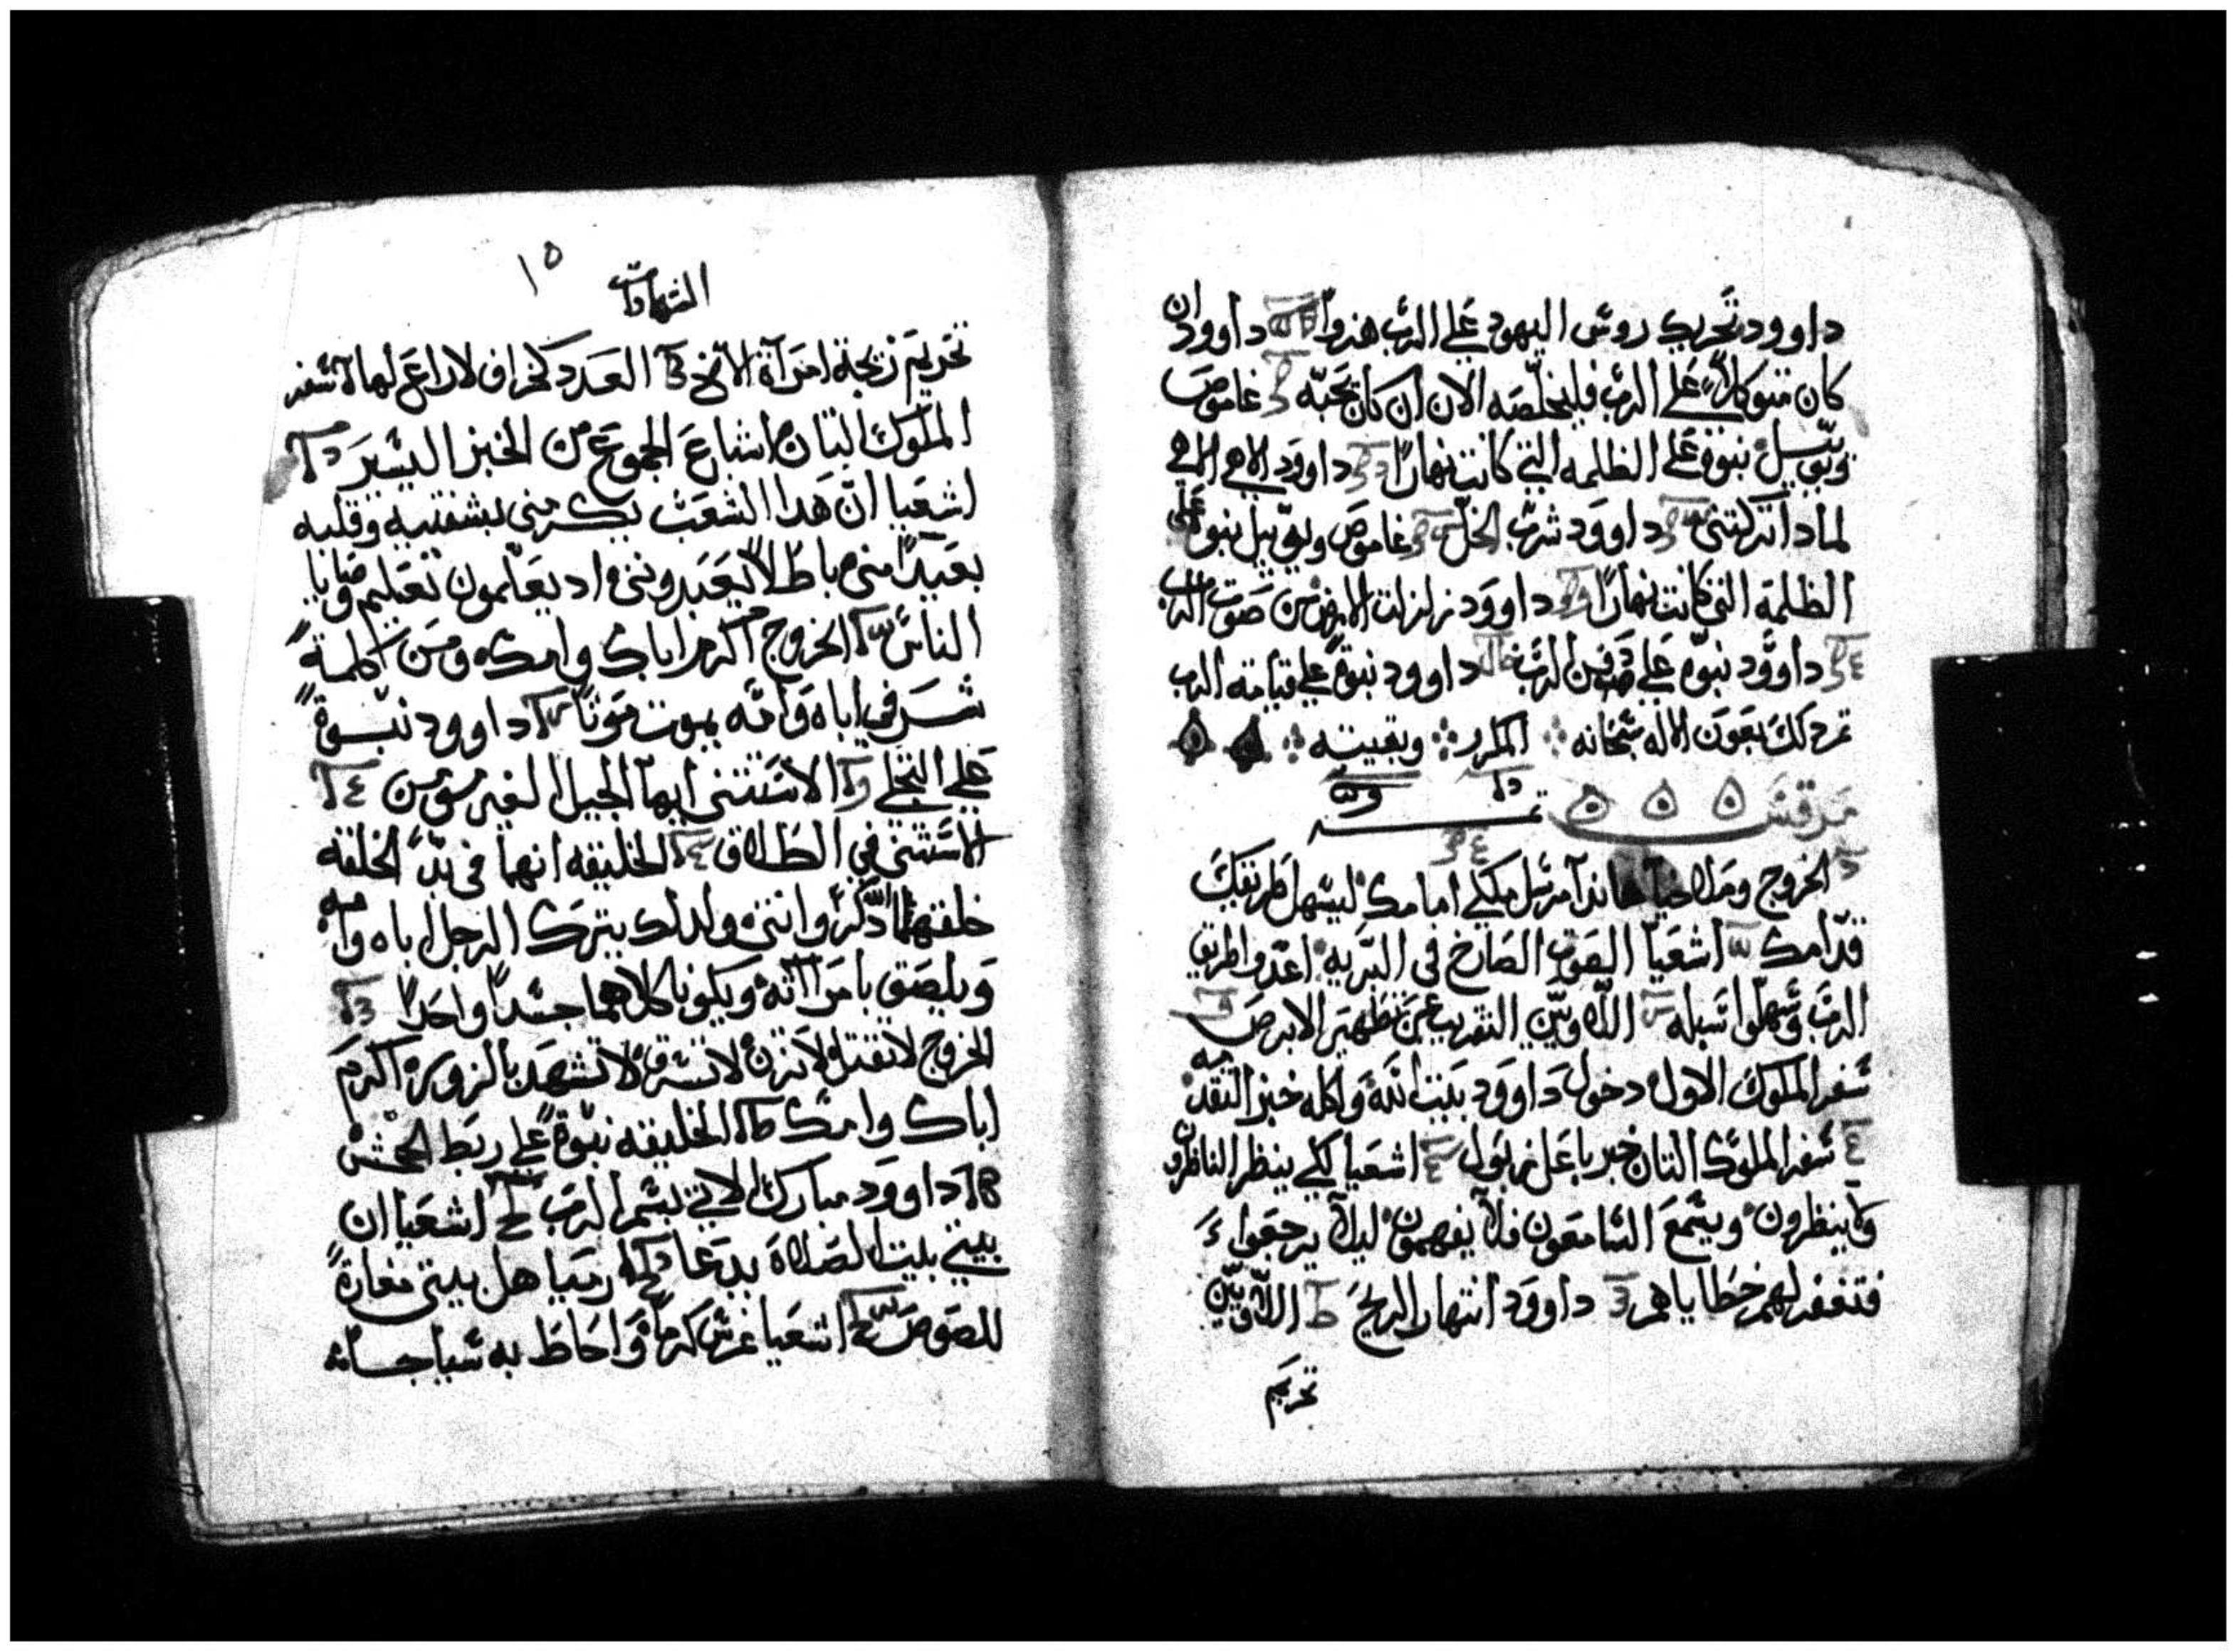 داوود تحريك روس اليهود علي الرب هزوا داوود ان
كان متوكلاً علي الرب فليخلصه الان ان كان يحبه غاموص
ويوييل نبوة علي الظلمه التي كانت نهارًا داوود الاهي الاهي
لمادا تركتني داوود شرب الخل غاموص ويوييل نبوة علي
الظلمة التي كانت نهارًا داوود زلزلت الارض من صوت الرب
داوود نبوه علي دفن الرب داوود نبوة علي قيامة الرب
تم دلك بعون الاله سبحانه المكرر وبقيته
مرقس
الخروج وملاخيا هاندا مرسل ملاكي امامك ليسهل طريقك
قدامك اشعيا الصوت الصارخ في البريه اعدوا طريق
الرب وسهلوا سبله اللاويين التقريب عن تطهير الابرص
سفر الملوك الاول دخول داوود بيت الله واكله خبز التقدمه
سفر الملوك التان خبر باعل زبول اشعيا لكي ينظر الناظرون
ولا ينظرون ويسمع السامعون فلا يفهمون ليلا يرجعوا
فتغفر لهم خطاياهم داوود انتهار الريح اللاويين
تحريم
١٥
الشهادات
تحريم زيجة امرآة الاخ العدد كخراف لا راعي لها سفر
الملوك التان اشباع الجموع من الخبز اليسير
اشعيا ان هدا الشعب يكرمني بشفتيه وقلبه
بعيدًا مني باطلاً يعبدونني اد يعلمون تعليم وصايا
الناس الخروج اكرم اباك وامك ومن كلمة
شر في اباه وامه يموت موتًا داوود نبوة
علي التجلي الاستتني ايها الجيل الغير مومن
الاستتني في الطلاق الخليقه انهما في بدء الخلقه
خلقهما دكر وانتي ولدلك يترك الرجل اباه وامه
ويلصق بامرآته ويكونا كلاهما جسدًا واحدًا
الخروج لا تقتل لا تزن لا تسرق لا تشهد بالزور اكرم
اباك وامك الخليقه نبوة علي ربط الجحش
داوود مبارك الاتي بسم الرب اشعيا ان
بيتي بيت الصلاة يدعا ارميا هل بيتي مغارة
للصوص اشعيا غرس كرمًا واحاط به سياجات